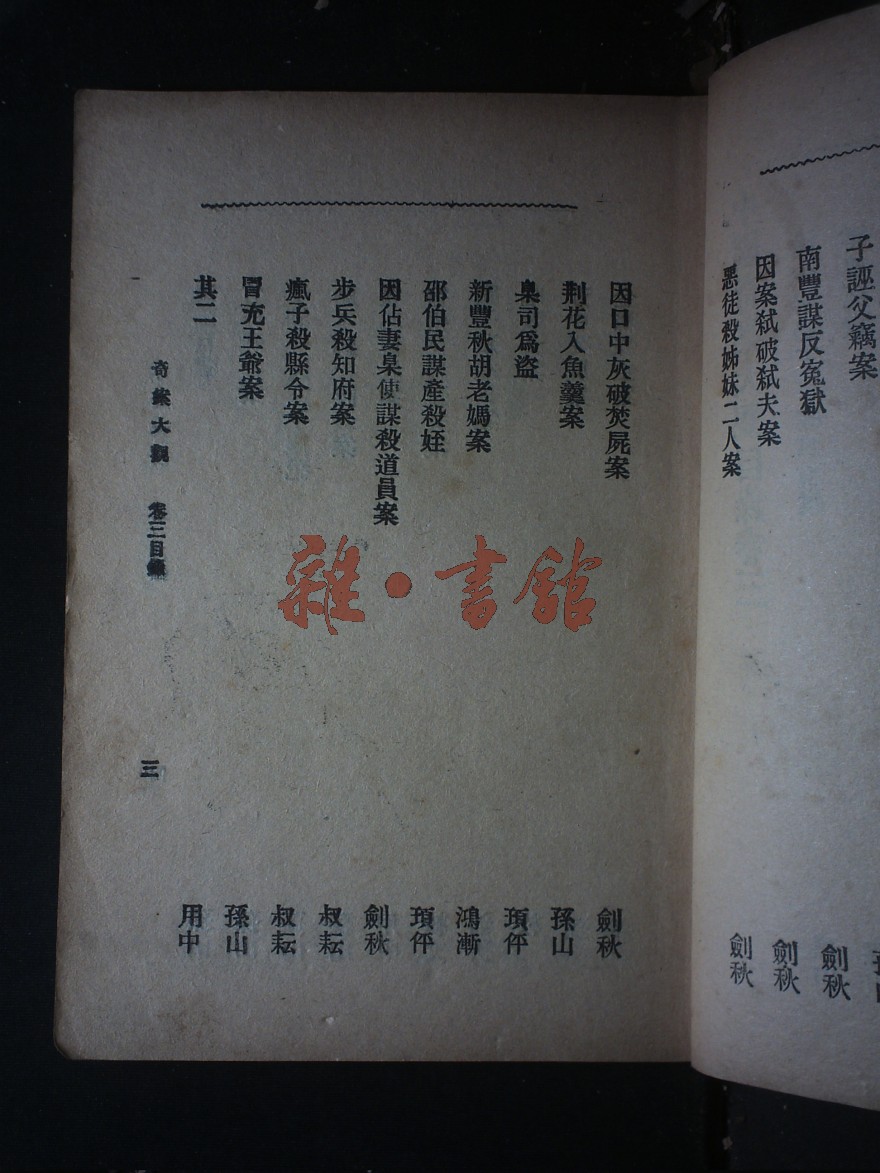 子誣父竊案
劍秋
南豐謀反冤獄
劍秋
因案弑破弑夫案
劍秋
惡徒殺姊妹二人案
因口中灰破焚屍案 劍秋
荆花入魚羹案 孫山
臬司爲盜 頊伻
新豐秋胡老媽案 鴻漸
邵伯民謀產殺姪 頊伻
因佔妻臬使謀殺道員案 劍秋
步兵殺知府案 叔耘
瘋子殺縣令案 叔耘
冒充王爺案 孫山
其二 用中
奇案大觀 卷三目錄 三
雜·書館